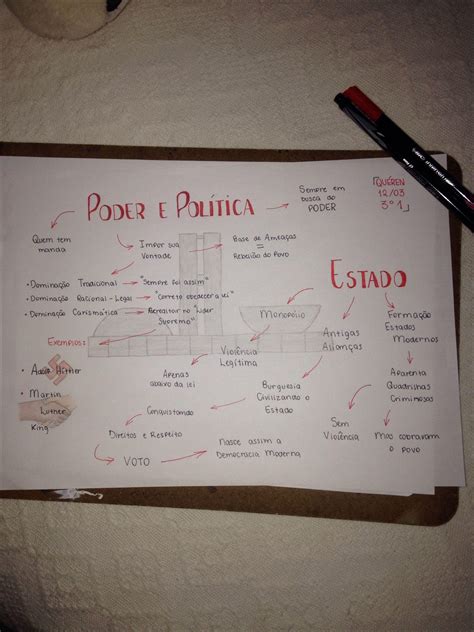 QUÉREN
12/03
3º1
PODER E POLÍTICA
Sempre em
busca do
PODER
Quem tem
manda
Impor sua
Vontade
Base de Ameaças
=
Rebelião do Povo
• Dominação Tradicional → "Sempre foi assim"
• Dominação Racional-Legal → "Correto obedecer a lei"
• Dominação Carismática → "Acreditar no "Líder
Supremo"
Exemplos:
• Adolf Hithler
• Martin
Luther
King
ESTADO
Monopólio
Violência
Legítima
Apenas
abaixo da lei
Antigas
Alianças
Formação
Estados
Modernos
Burguesia
Civilizando o
Estado
Aparenta
Quadrinhas
Crimimosas
Conquistando
Direitos e Respeito
VOTO
Nasce assim a
Democracia Moderna
Sem
Violência
Mas cobravam
o povo